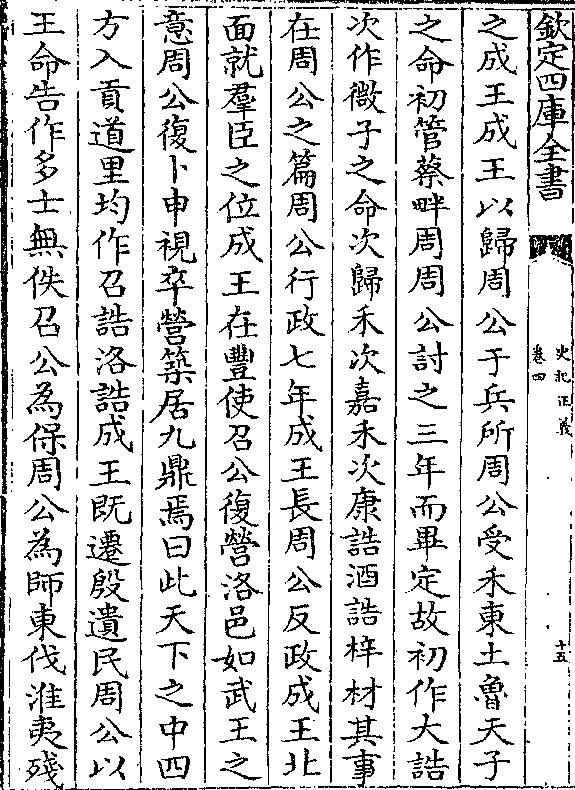 欽定四庫全書
史記正義
卷四
十五
之成王成王以歸周公于兵所周公受禾東土魯天子
之命初管蔡畔周周公討之三年而畢定故初作大誥
次作微子之命次歸禾次嘉禾次康誥酒誥梓材其事
在周公之篇周公行政七年成王長周公反政成王北
面就羣臣之位成王在豐使召公復營洛邑如武王之
意周公復卜申視卒營築居九鼎焉曰此天下之中四
方入貢道里均作召誥洛誥成王既遷殷遺民周公以
王命告作多士無佚召公為保周公為師東伐淮夷殘